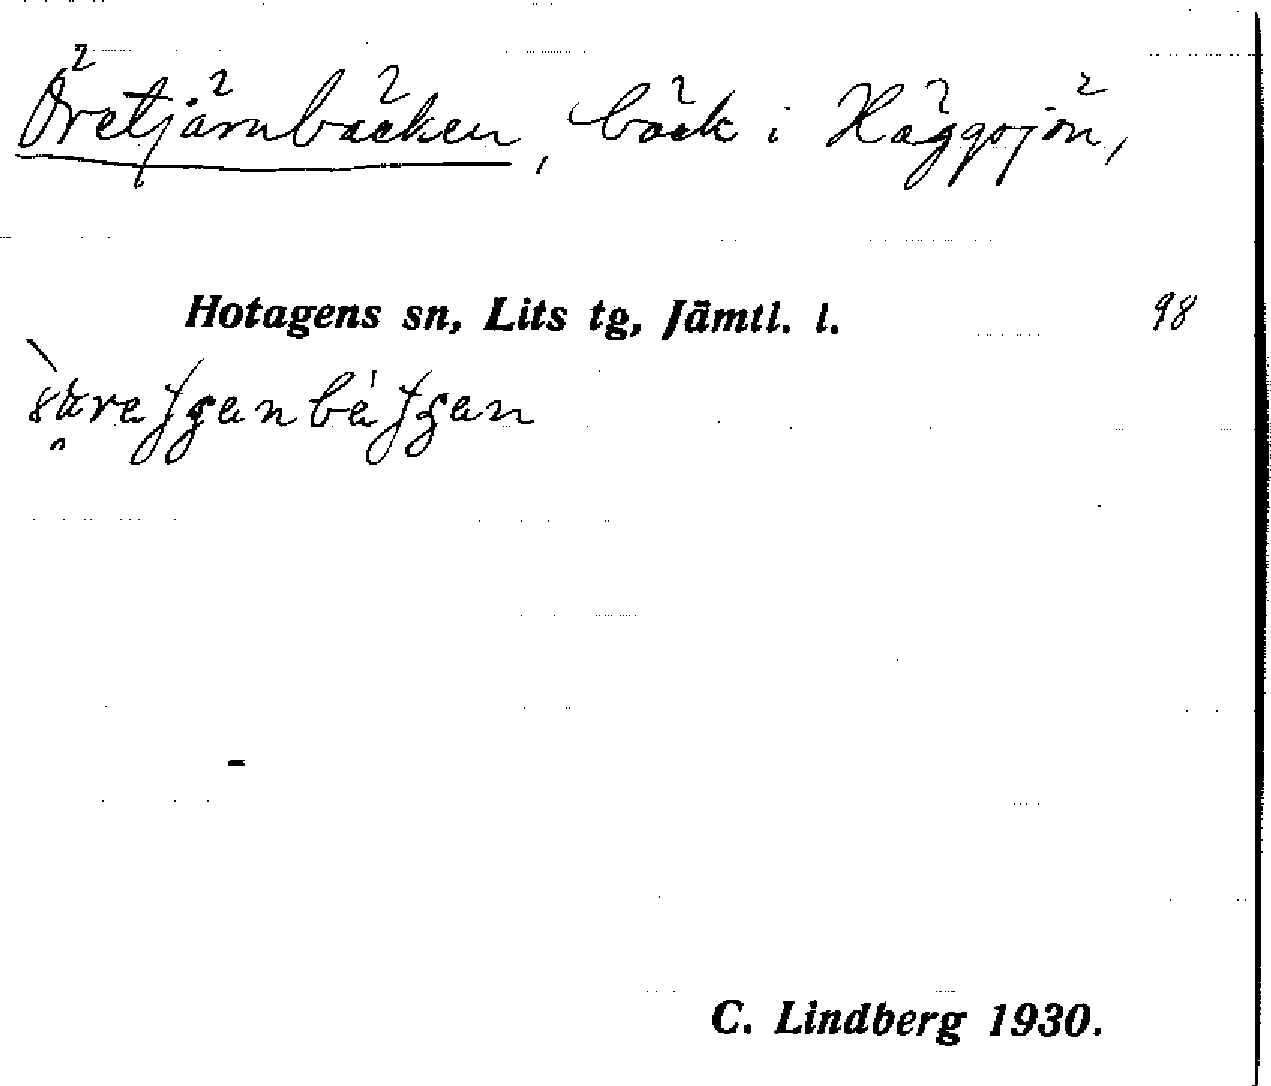 Öretjärnbäcken, bäck i Häggsjön,
Hotagens sn, Lits tg, Jämtl. l. 98
C. Lindberg 1930.